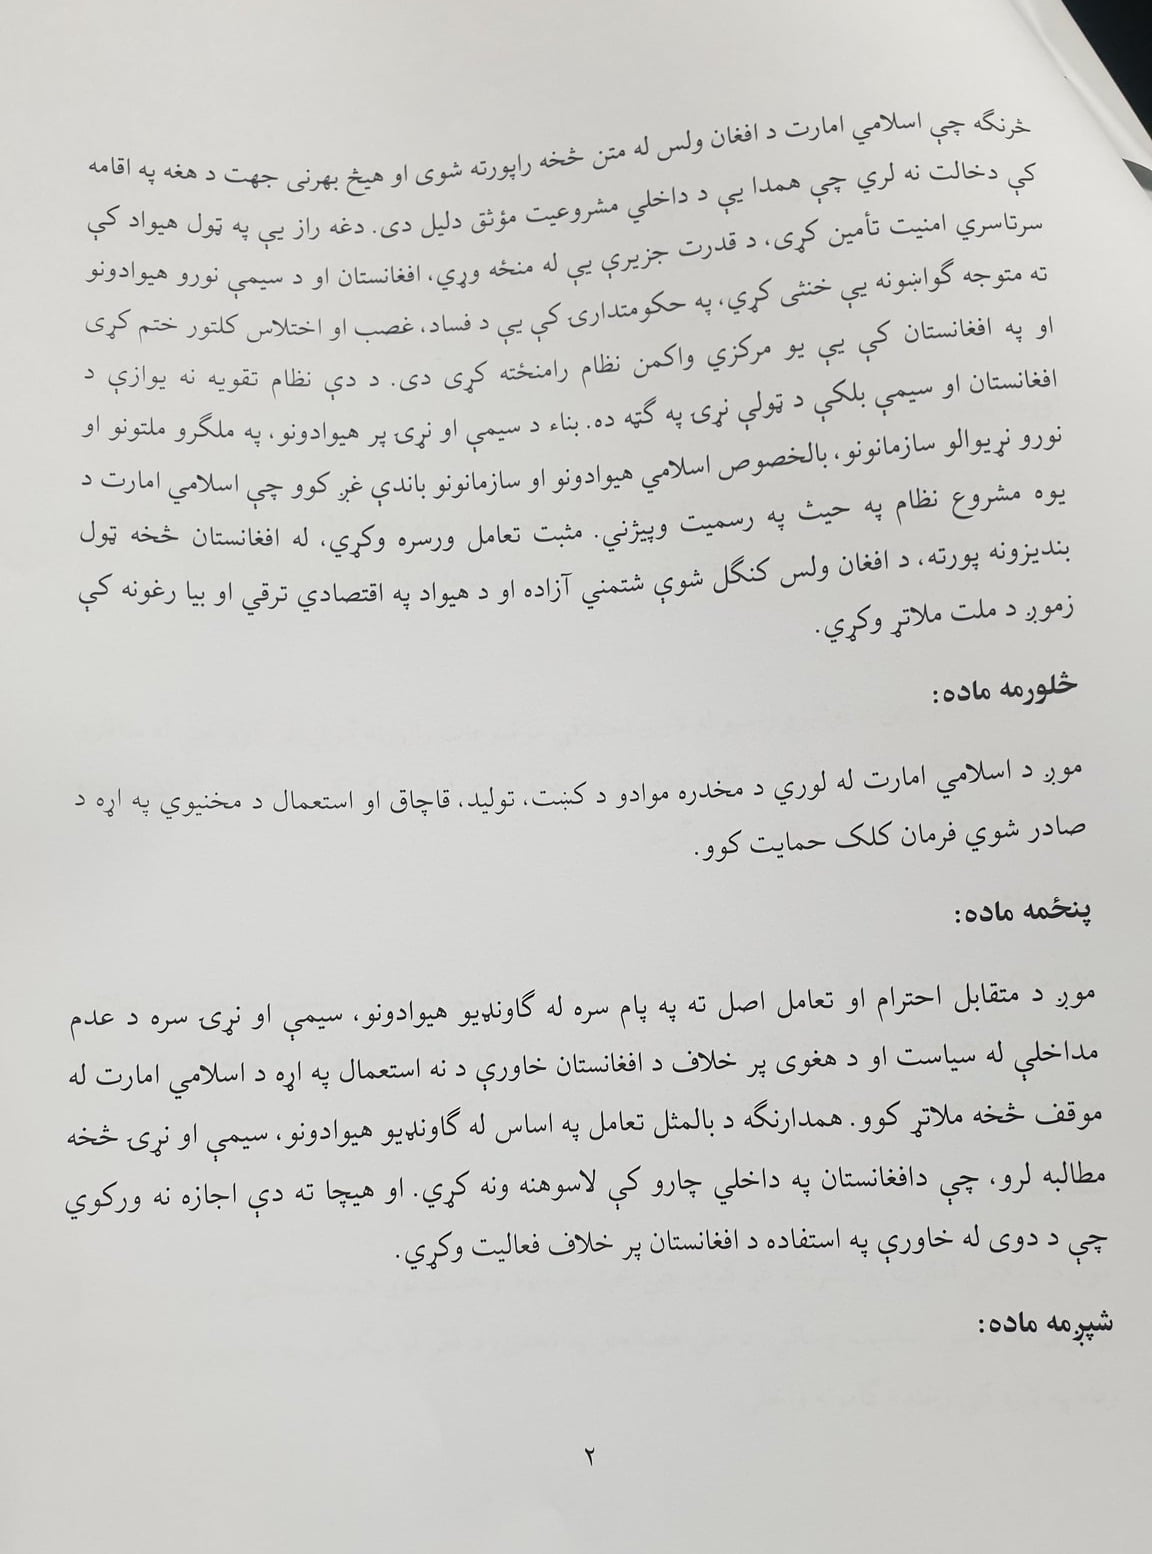 څرنګه چې اسلامي امارت د افغان ولس له متن څخه راپورته شوی او هیڅ بهرنی جهت د هغه په اقامه
کې دخالت نه لري چې همدا یې د داخلي مشروعیت مؤثق دلیل دی. دغه راز یې په ټول هیواد کې
سرتاسري امنیت تأمین کړی، د قدرت جزیرې یې له منځه وړي، افغانستان او د سیمې نورو هیوادونو
ته متوجه ګواښونه یې خنثی کړي، په حکومتدارۍ کې یې د فساد، غصب او اختلاس کلتور ختم کړی
او په افغانستان کې یې یو مرکزي واکمن نظام رامنځته کړی دی. د دې نظام تقویه نه یوازې د
افغانستان او سیمې بلکې د ټولې نړۍ په ګټه ده. بناء د سیمې او نړۍ پر هیوادونو، په ملګرو ملتونو او
نورو نړیوالو سازمانونو، بالخصوص اسلامي هیوادونو او سازمانونو باندې غږ کوو چې اسلامي امارت د
یوه مشروع نظام په حیث په رسمیت وپیژني. مثبت تعامل ورسره وکړي، له افغانستان څخه ټول
بندیزونه پورته، د افغان ولس کنګل شوې شتمني آزاده او د هیواد په اقتصادي ترقي او بیا رغونه کې
زموږ د ملت ملاتړ وکړي.
څلورمه ماده:
موږ د اسلامي امارت له لوري د مخدره موادو د کښت، تولید، قاچاق او استعمال د مخنیوي په اړه د
صادر شوي فرمان کلک حمایت کوو.
پنځمه ماده:
موږ د متقابل احترام او تعامل اصل ته په پام سره له ګاونډیو هیوادونو، سیمې او نړۍ سره د عدم
مداخلې له سیاست او د هغوی پر خلاف د افغانستان خاورې د نه استعمال په اړه د اسلامي امارت له
موقف څخه ملاتړ کوو. همدارنګه د بالمثل تعامل په اساس له ګاونډیو هیوادونو، سیمې او نړۍ څخه
مطالبه لرو، چې دافغانستان په داخلي چارو کې لاسوهنه ونه کړي. او هیچا ته دې اجازه نه ورکوي
چې د دوی له خاورې په استفاده د افغانستان پر خلاف فعالیت وکړي.
شپږمه ماده:
۲